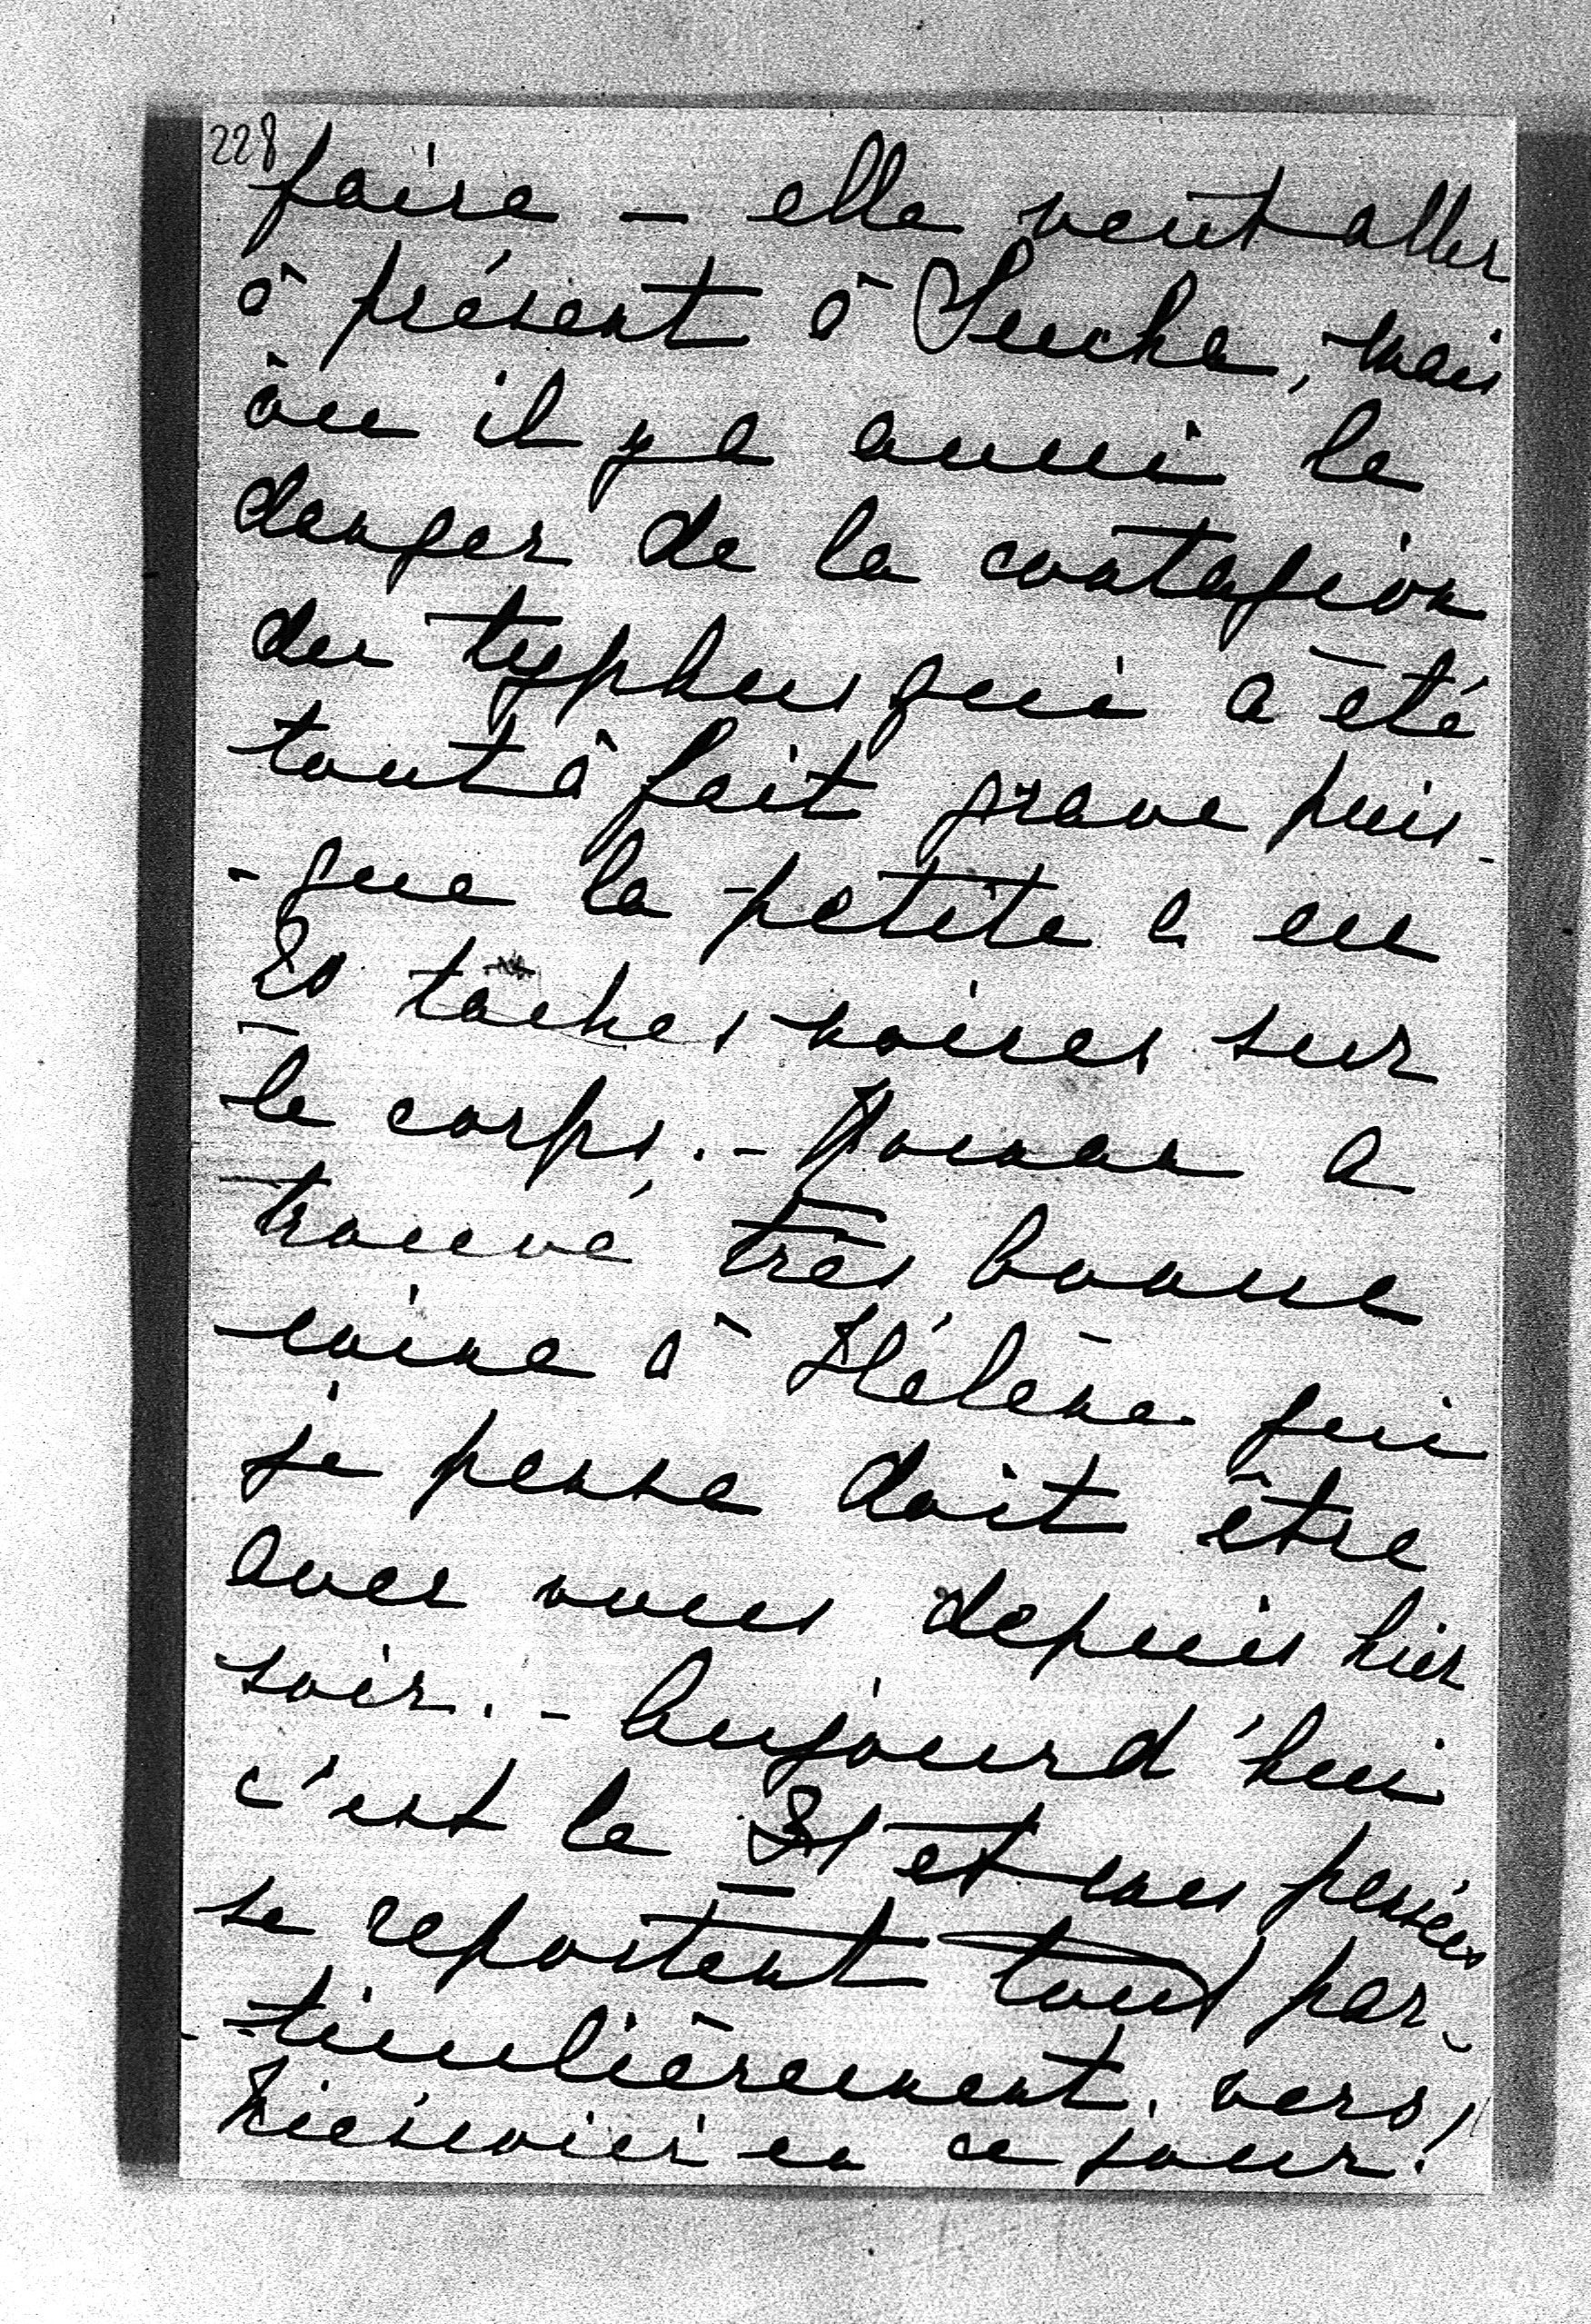 228
faire — elle veut aller
à présent à Sucha, mais
où il y a aussi le
danger de la contagion
du typhus qui a été
tout à fait grave puis-
-que la petite a eu
20 tâches noires sur
le corps. - Roman a
trouvé très bonne
mine à Hélène qui
je pense doit être
avec vous depuis hier
soir. - Aujourd'hui
c'est le 31 et mes pensées
se reportent tout par-
-ticulièrement vers
en ce jour!